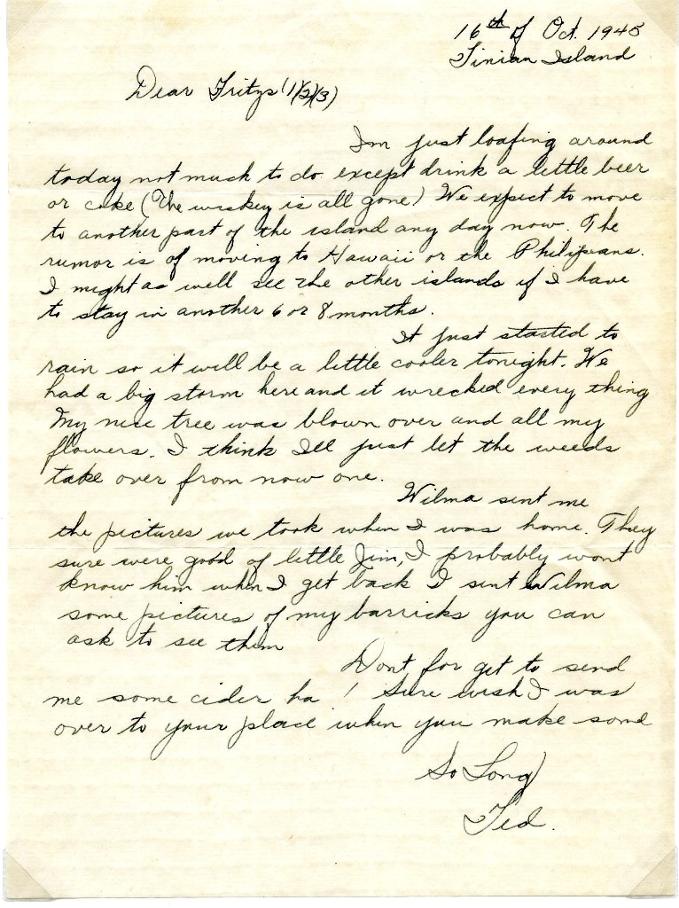 16th of Oct. 1945
Tinian Island
Dear Fritzs (1/2/3)
Im just loafing around
today not much to do except drink a little beer
or coke (The wiskey is all gone) We expect to move
to another part of the island any day now. The
rumor is of moving to Hawaii or the Philipeans.
I might as well see the other islands if I have
to stay in another 6 or 8 months.
It just started to
rain so it will be a little cooler tonight. We
had a big storm here and it wrecked every thing
My nise tree was blown over and all my
flowers. I think Ill just let the weeds
take over from now one.
Wilma sent me
the pictures we took when I was home. They
sure were good of little Jim, I probably wont
know him when I get back I sent Wilma
some pictures of my barricks you can
ask to see them
Dont for get to send
me some cider ha ! Sure wish I was
over to your place when you make some
So Long
Ted.